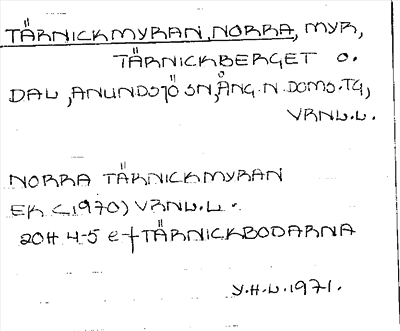 TÄRNICKMYRAN, NORRA, MYR,
TÄRNICKBERGET O.
DAL, ANUNDSJÖ SN, ÅNG. N. DOMS. TG,
VRNL.L.
NORRA TÄRNICKMYRAN
EK (1970) VRNL.L.
20H 4-5 e-f TÄRNICKBODARNA
Y.H.L. 1971.